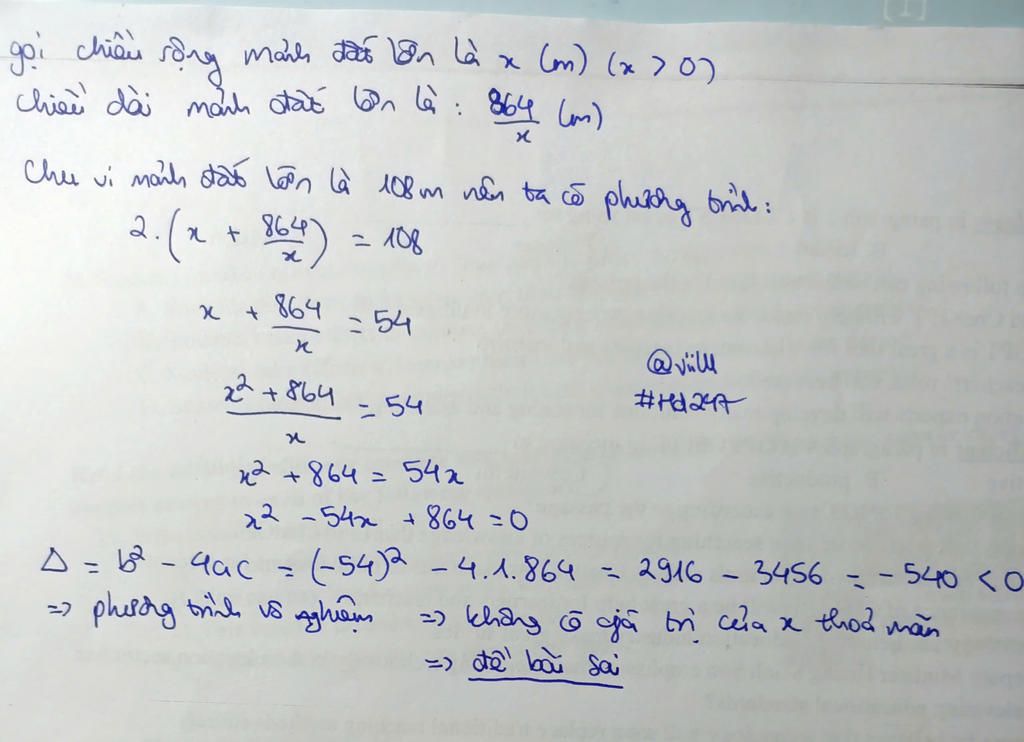 [1]
gọi chiều rộng mảnh đất lớn là x (m) (x > 0)
chiều dài mảnh đất lớn là : 864/x (m)
Chu vi mảnh đất lớn là 108m nên ta có phương trình:
2.(x + 864/x) = 108
x + 864/x = 54
(x² + 864)/x = 54
@viiu
#Hd247
x² + 864 = 54x
x² - 54x + 864 = 0
Δ = b² - 4ac = (-54)² - 4.1.864 = 2916 - 3456 = -540 < 0
=> phương trình vô nghiệm => không có giá trị của x thoả mãn
=> đề bài sai